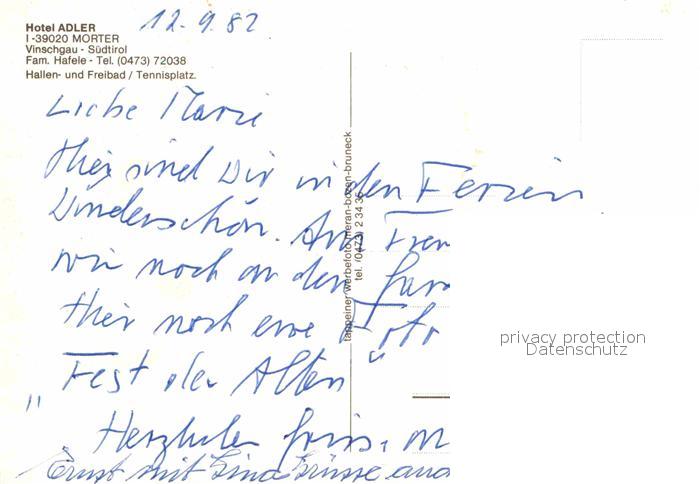 Hotel ADLER
I-39020 MORTER
Vinschgau - Südtirol
Fam. Hafele - Tel. (0473) 72038
Hallen- und Freibad / Tennisplatz.
12.9.82
Liebe
Hier sind Wir in den Ferien
Wunderschön.
wir noch an den
Hier noch eine Foto
"Fest der Alten"
Ernst mit Grüsse
tappeiner werbefoto meran-bozen-bruneck
tel. (0473) 2 34 3
privacy protection
Datenschutz